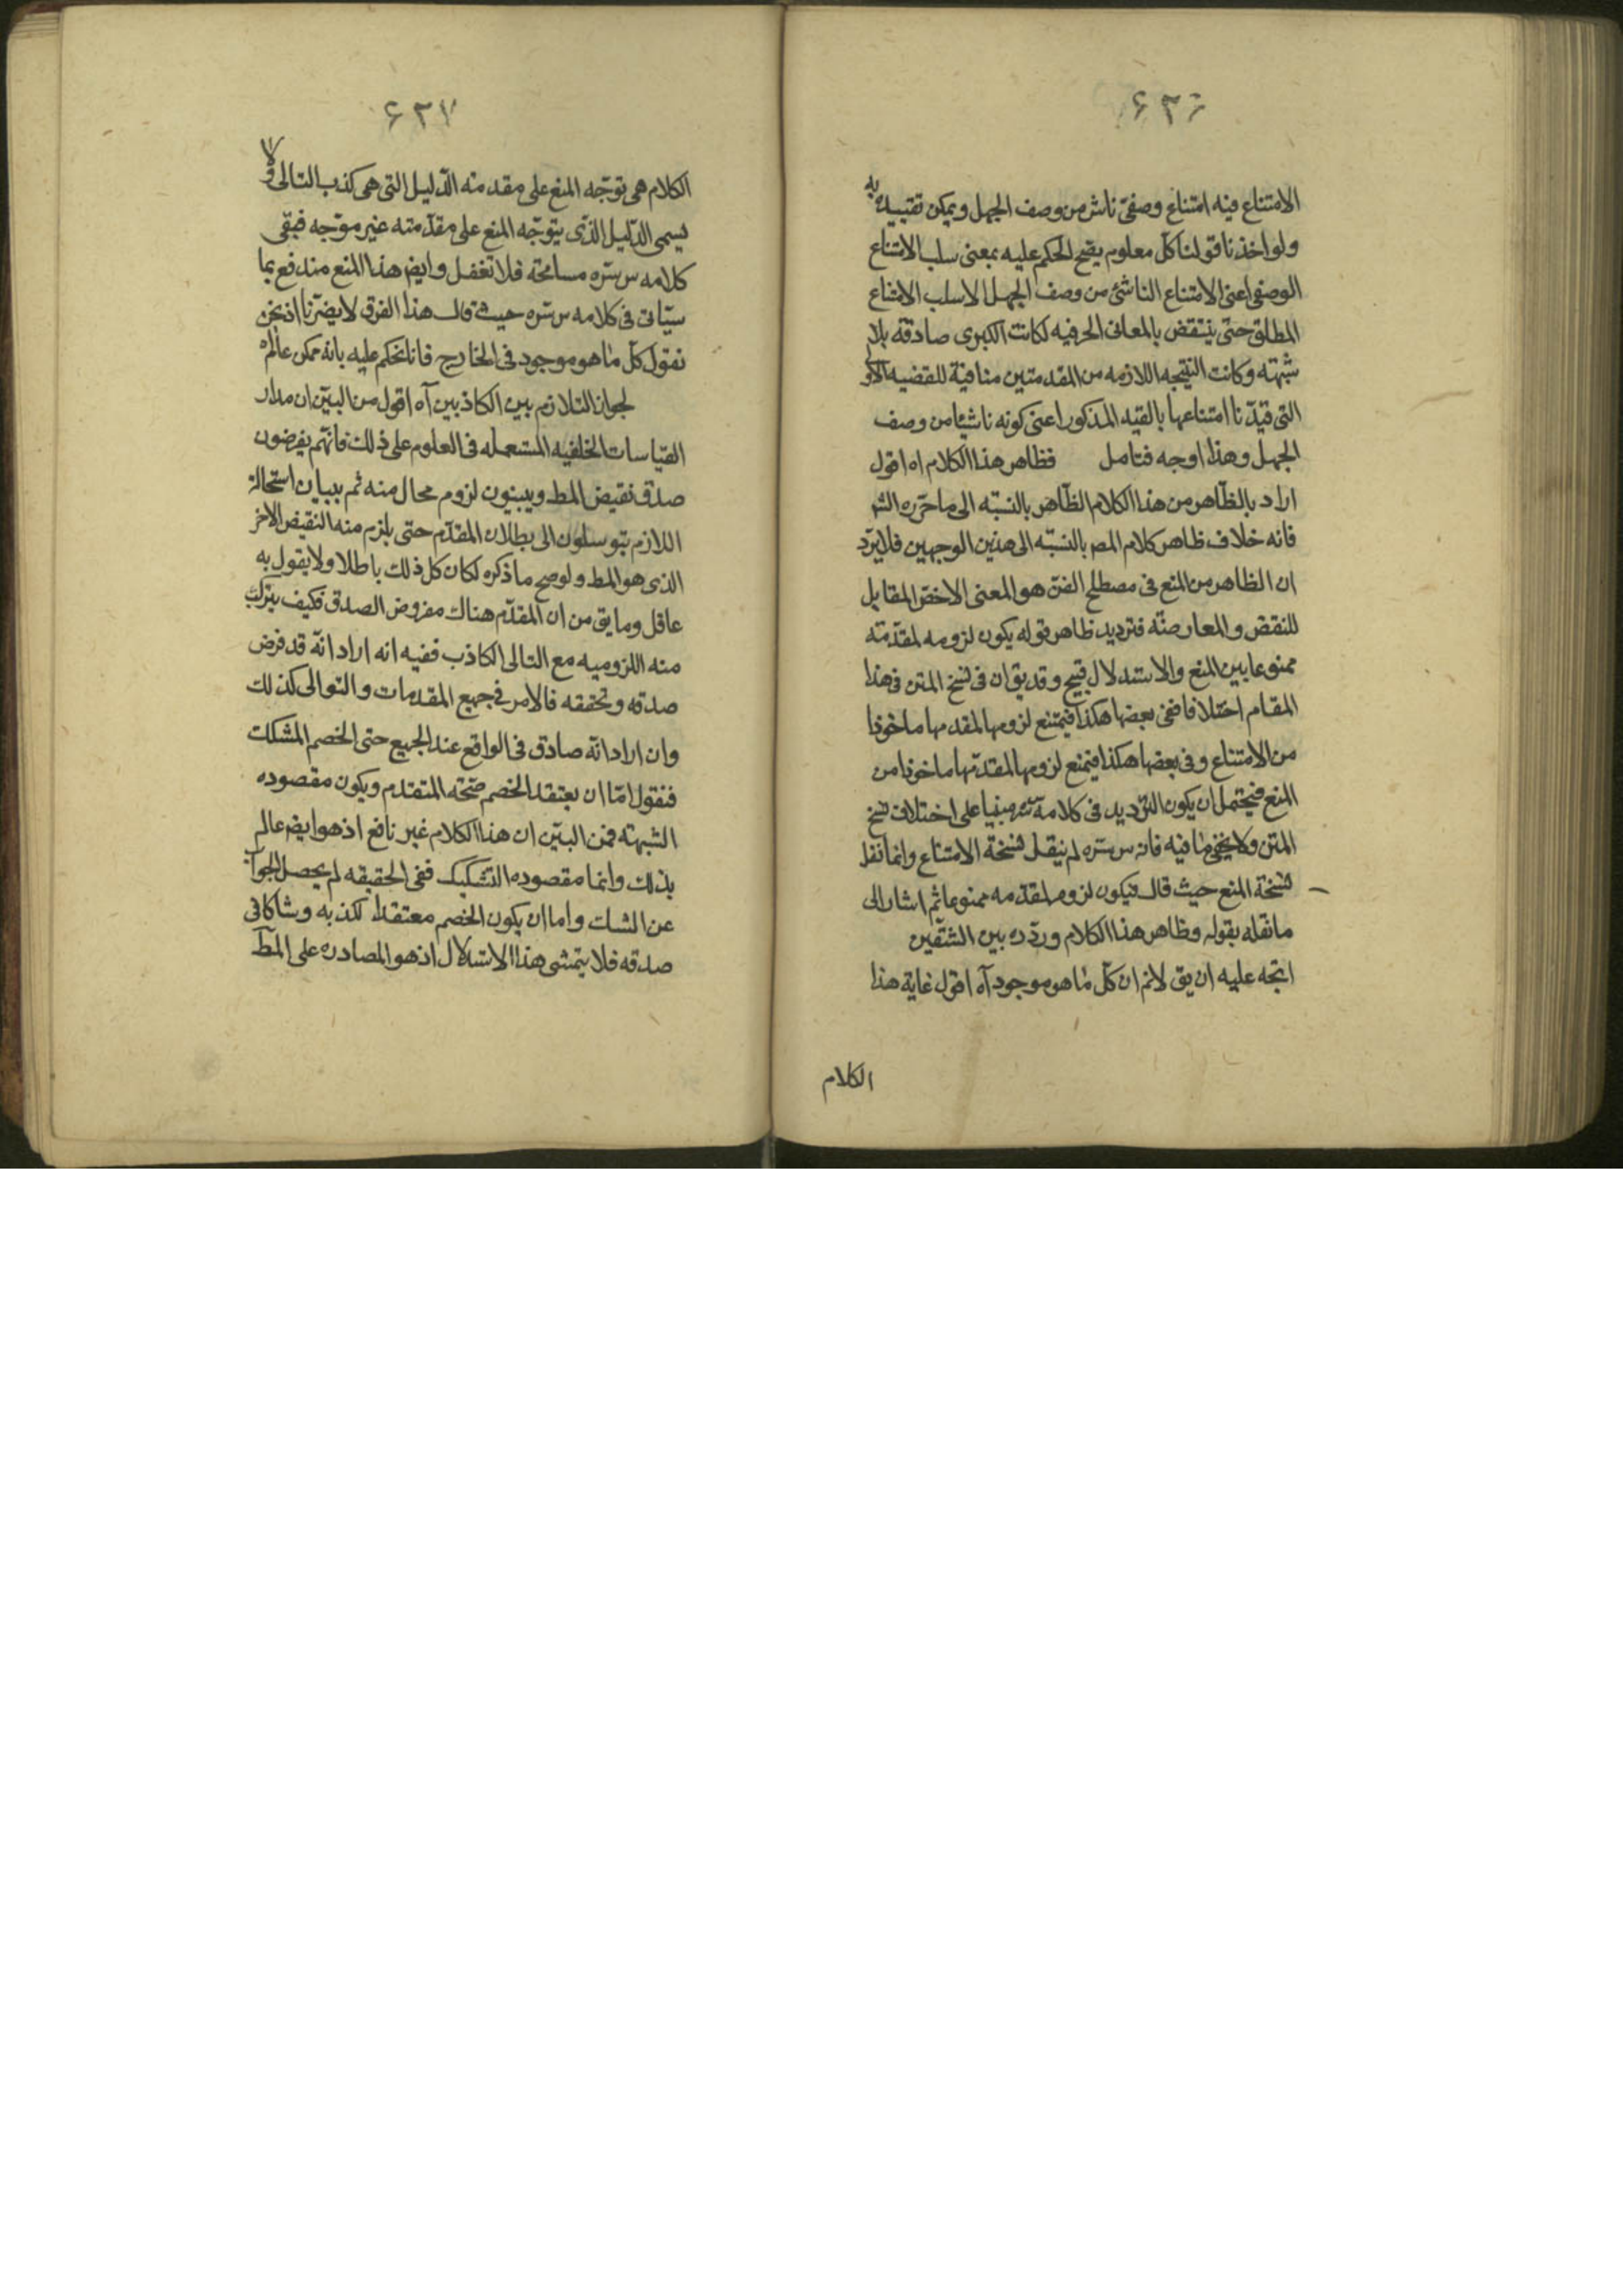 ۶۳۶
الامتناع فيه امتناع وصفىّ ناش من وصف الجهل ويمكن تقييده به
ولو اخذنا قولنا كلّ معلوم يصحّ الحكم عليه بمعنى سلب الامتناع
الوصفى اعنى الامتناع الناشئ من وصف الجهل لا سلب الامتناع
المطلق حتى ينتقض بالمعانى الحرفيه لكانت الكبرى صادقه بلا
شبهته وكانت النتيجه اللازمه من المقدمتين منافية للقضيه الاولى
التى قيّدنا امتناعها بالقيد المذكور اعنى كونه ناشيًا من وصف
الجهل وهذا اوجه فتامل فظاهر هذا الكلام اه اقول
اراد بالظاهر من هذا الكلام الظاهر بالنسبه الى ما حرّره الشر
فانه خلاف ظاهر كلام المصر بالنسبته الى هذين الوجهين فلا يرد
ان الظاهر من المنع فى مصطلح الفنّ هو المعنى الاخصّ المقابل
للنقض والمعارضته فترديد ظاهر قوله يكون لزومه لمقدّمته
ممنوعا بين المنع والاستدلال قبيح وقد يق ان فى نسخ المتن فى هذا
المقام اختلافا ففى بعضها هكذا فيمتنع لزومها لمقدمها ماخوذا
من الامتناع وفى بعضها هكذا فيمنع لزومها لمقدمها ماخوذا من
المنع فيحتمل ان يكون الترديد فى كلامه سره مبنيا على اختلاف نسخ
المتن ولا يخفى ما فيه فانه س سره لم ينقل نسخة الامتناع وانما نقل
نسخة المنع حيث قال فيكون لزومه لمقدّمه ممنوعا ثم اشار الى
ما نقله بقوله وظاهر هذا الكلام وردّده بين الشقّين
اتجه عليه ان يق لانم ان كلّ ما هو موجود آه اقول غاية هذا
الكلام
۶۳۷
الكلام هى توجّه المنع على مقدمته الدليل التى هى كذب التالى ولا
يسمى الدّليل الذى يتوجّه المنع على مقدّمته غير موجّه فبقى
كلامه س سره مسامحته فلا تغفل وايضر هذا المنع مندفع بما
سيّاتى فى كلامه س سره حيث قال هذا الفرق لا يضرّنا اذ نحن
نقول كلّ ما هو موجود فى الخارج فانا نحكم عليه بانه ممكن عالم اه
لجواز التلازم بين الكاذبين آه اقول من البيّن ان مدار
القياسات الخلفيه المستعمله فى العلوم على ذلك فانهم يفرضون
صدق نقيض المط ويبينون لزوم محال منه ثم ببيان استحالة
اللازم يتوسلون الى بطلان المقدّم حتى يلزم منه النقيض الاخر
الذى هو المط ولو صح ما ذكره لكان كل ذلك باطلا ولا يقول به
عاقل وما يق من ان المقدّم هناك مفروض الصدق فكيف يتركب
منه اللزوميه مع التالى الكاذب ففيه انه اراد انّه قد فرض
صدقه وتحققه فالامر فى جميع المقدمات والتوالى كذلك
وان اراد انّه صادق فى الواقع عند الجميع حتى الخصم المشكك
فنقول امّا ان يعتقد الخصم صحّته المتقدم ويكون مقصوده
الشبهته فمن البيّن ان هذا الكلام غير نافع اذ هو ايضر عالم
بذلك وانما مقصوده التشكيك ففى الحقيقه لم يحصل الجواب
عن الشك واما ان يكون الخصم معتقدا لكذبه وشاكا فى
صدقه فلا يتمشى هذا الاستدلال اذ هو المصادره على المط